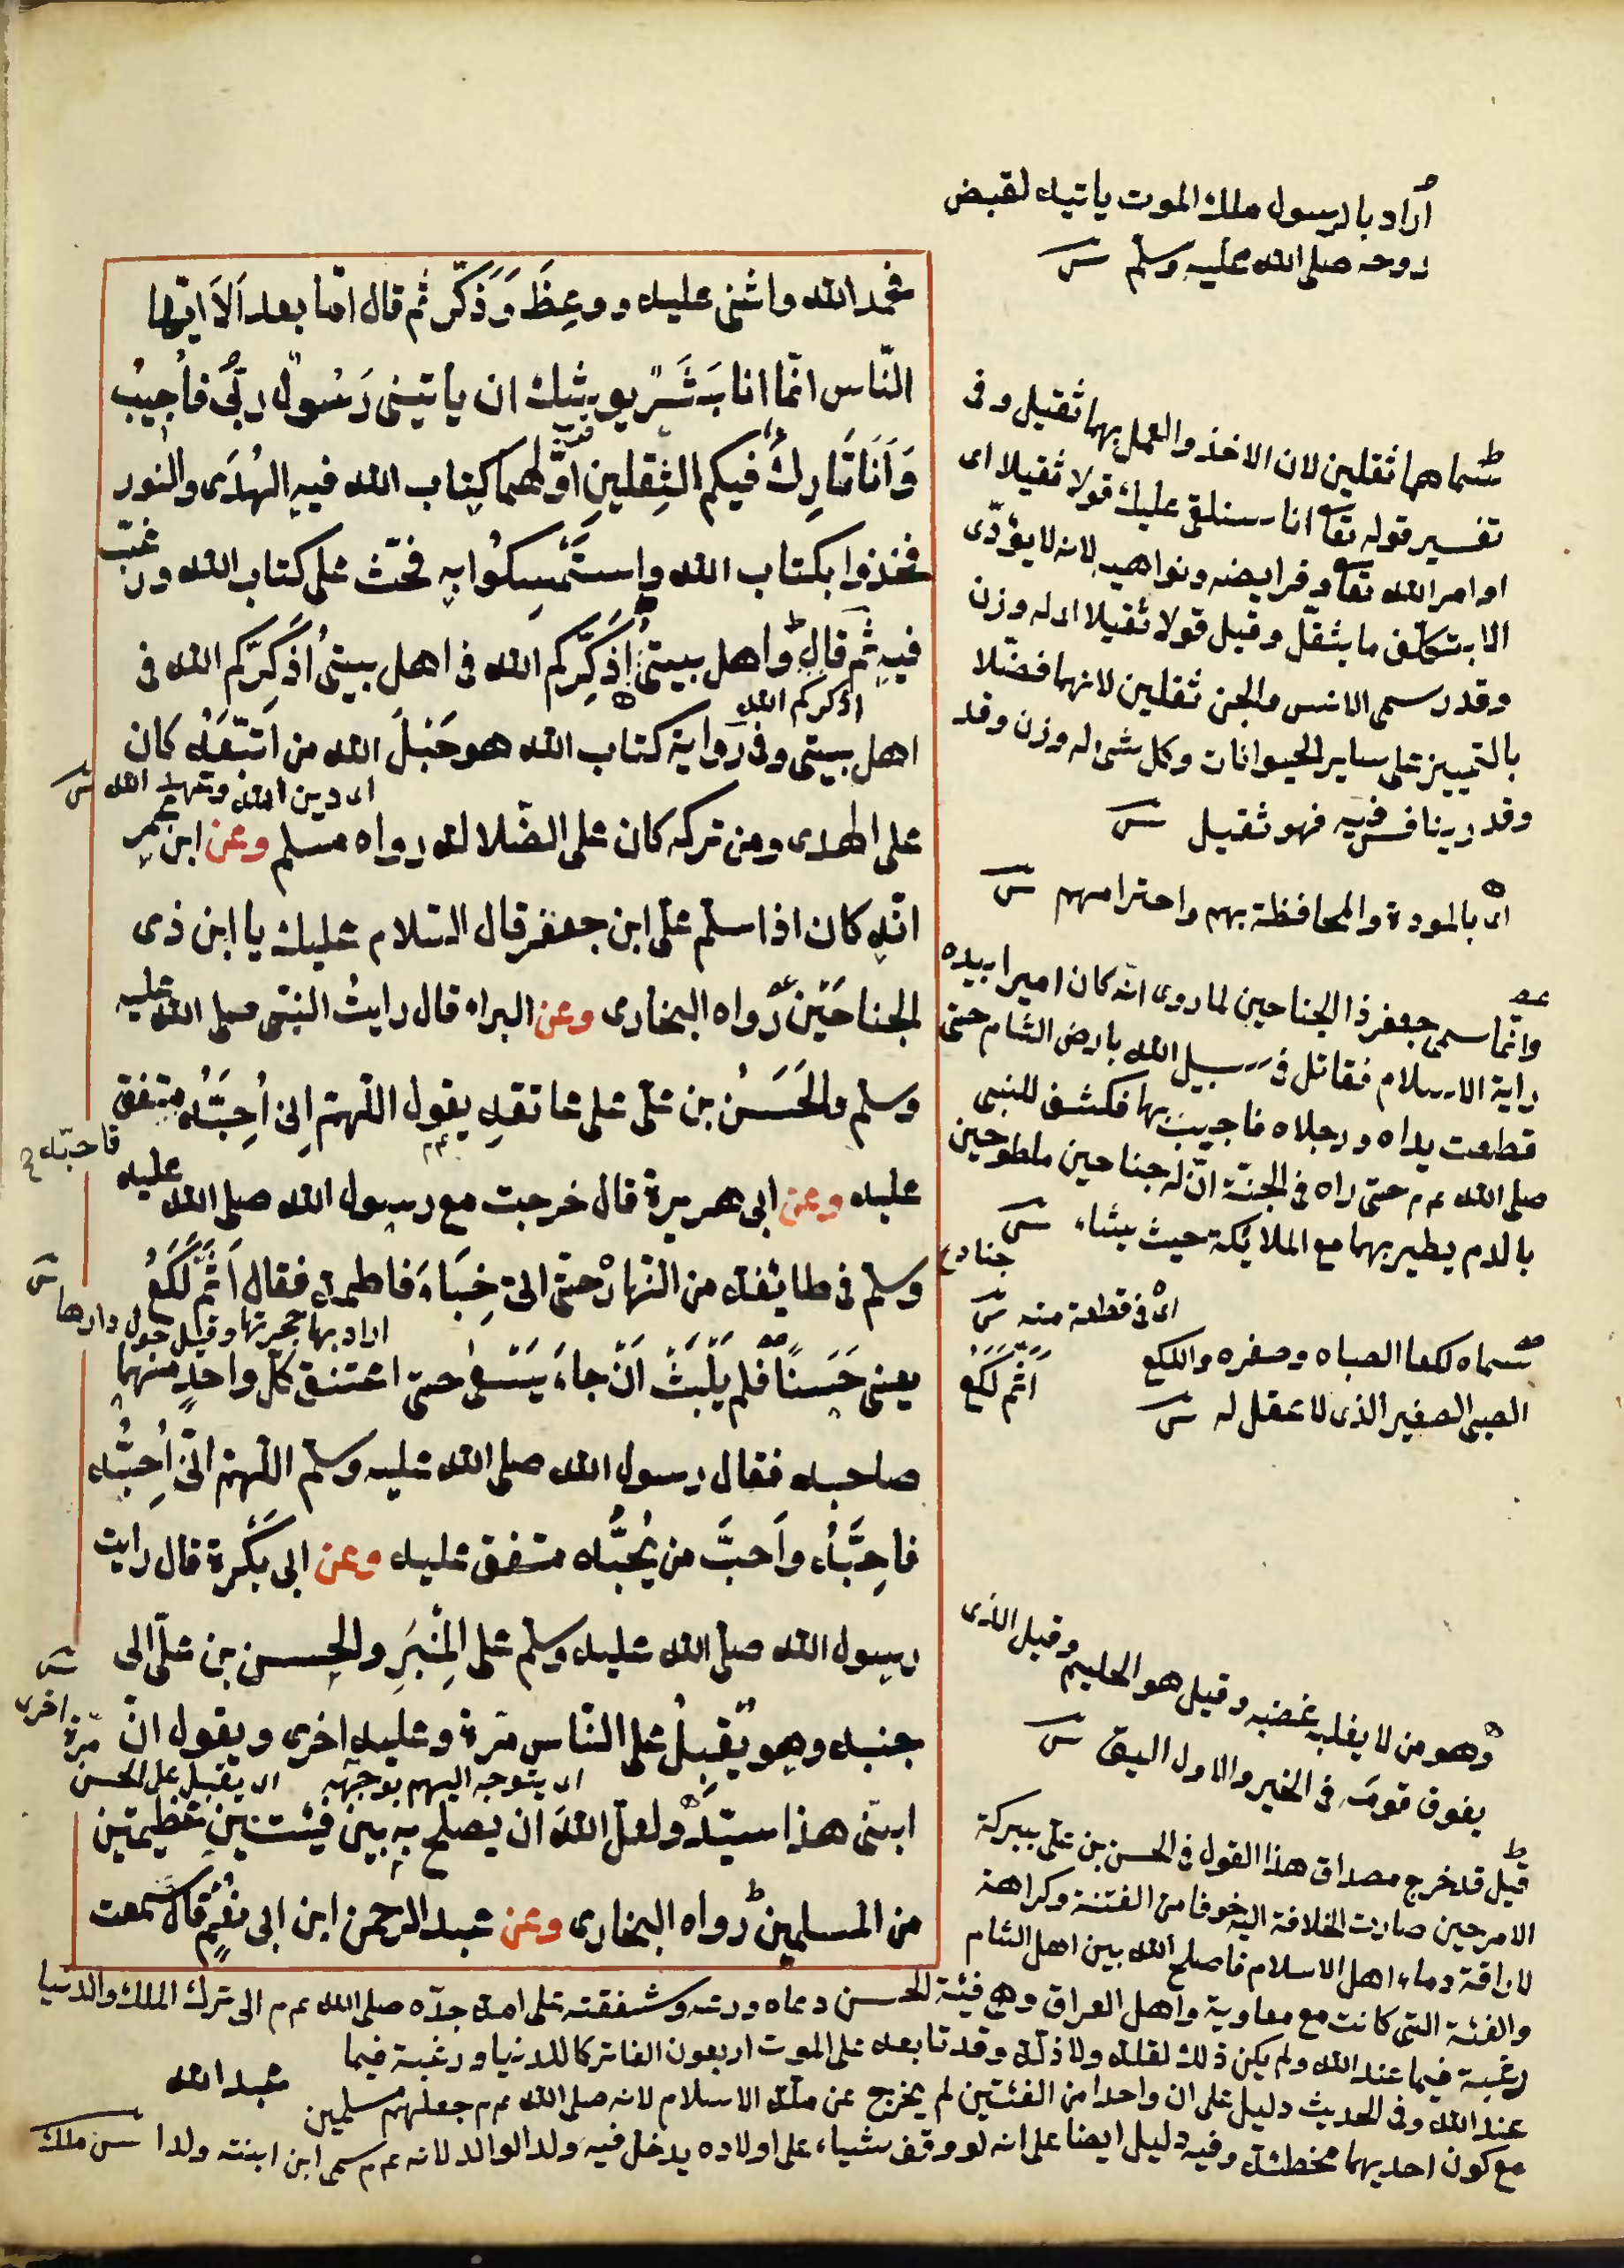 اراد بالرسول ملك الموت ياتيه لقبض
روحه صلى الله عليه وسلم
فحمد الله واثنى عليه ووعظ وَذَكّر ثم قال امّا بعد اَلاَ ايّها
النّاس انّما انا بَشَرٌ يوشك ان ياتينى رَسُولُ ربّى فاُجِيبُ
وَاَنَا تَارِكٌ فيكم الثِقلينِ اوّلهما كِتاب الله فيهِ الهُدَى والنور
فخذوا بكتاب الله واستَمْسِكُوا بِه فحّث على كتاب الله ورغّب
فيهِ ثم قال واهل بيتىْ اُذَكِّركم الله فى اهل بيتىْ اُذكِرّكم الله فى
اذكركم الله
اهل بيتى وفى رواية كتاب الله هو حَبْلُ الله من اتَّبَعَهُ كان
اى دين الله وعهد الله
على الهدى ومن تركه كان على الضّلالة رواه مسلم وعن ابن عمر
انّه كان اذا سلّم على ابن جعفر قال السّلام عليك يا ابن ذى
الجناحَيْن رواه البخارى وعن البراء قال رايتُ النبّى صلى الله عليه
وسلم والحَسَنُ بن علّى على عاتقهِ يقول اللّهمّ اِنى اُحِبُّه متفق
فاحبّه
عليه وعن ابى هريرة قال خرجت مع رسول الله صلى الله عليه
وسلم فى طائفة من النّهارْ حتىّ اتى خِبَاءَ فاطمة فقال اَثَمَّ لُكَعُ
اراد بها حجرتها وقيل حول دارها
يعنى حَسَنًا فلم يَلْبَثْ اَنْ جاءَ يَسْعىٰ حتى اعتنق كلّ واحدٍ منهما
صاحبه فقال رسول الله صلى الله عليه وسلّم اللّهمّ انّى اُحِبُّه
فاحِبَّهُ واَحبَّ من يُحبُّه متفق عليه وعن ابى بَكْرة قال رايت
رسول الله صلّى الله عليه وسلّم على المِنْبَرِ والحسن بن علّى الى
جنبه وهو يُقبِلُ على النّاس مرّة وعليه اخرى ويقول انّ
اى يتوجه اليهم بوجهه اى يقبل على الحسن مرّة اخرى
ابنى هذا سيّدٌ ولعلّ اللهَ ان يصلح بِه بين فِئتينِ عَظيمتين
من المسلمين رواه البخارى وعن عبد الرحمن ابن ابى نُعْمٍ قال سمعت
عبد الله
سماهما ثقلين لان الاخذ والعمل بهما ثقيل وفى
تفسير قوله تعا انا سنلقى عليك قولا ثقيلا اى
اوامر الله تعا وفرايضه ونواهيه لانه لا يؤدّى
الا بتكلّف ما يثقل وقيل قولا ثقيلا اى له وزن
وقدر سمى الانس والجن ثقلين لانهما فضّلا
بالتمييز على ساير الحيوانات وكل شئ له وزن وقد
وقدر ينافس فيه فهو ثقيل
اى بالمودة والمحافظة بهم واحترامهم
وانّما سمى جعفر ذا الجناحين لما روى انّه كان اميرا بيده
راية الاسلام فقاتل فى سبيل الله بارض الشام حتى
قطعت يداه ورجلاه فاجيب بها فكشف للنبى
صلى الله عم حتى راه فى الجنّة انّ له جناحين ملطوحين
بالدم يطير بهما مع الملائكة حيث يشاء
اى فى قطعة منه
سماه لكعا لصباه وصغره واللكع
اَثَمَّ لُكَعُ
الصبى الصغير الذى لا عقل له
وهو من لا يغلبه غضبه وقيل هو الحليم وقيل الذى
يفوق قومه فى الخير والاول اليق
قيل قد خرج مصداق هذا القول فى الحسن بن علّى ببركة
الامر حين صارت الخلافة اليه خوفا من الفتنة وكراهة
لاراقة دماء اهل الاسلام فاصلح الله بين اهل الشام
والفئة التى كانت مع معاوية واهل العراق وهى فئية الحسن دعاه ورعه وشفقته على امة جدّه صلى الله عم الى ترك الملك والدنيا
رغبة فيما عند الله ولم يكن ذلك لقلة ولا ذلّة وقد تابعه على الموت اربعون الفا تركا للدنيا ورغبة فيما
عند الله وفى الحديث دليل على ان واحدا من الفئتين لم يخرج عن ملّة الاسلام لانه صلى الله عم جعلهم مسلمين
مع كون احديهما مخطئة وفيه دليل ايضا على انه لو وقف شياء على اولاده يدخل فيه ولد الوالد لانه عم سمى ابن ابنته ولدا ملك